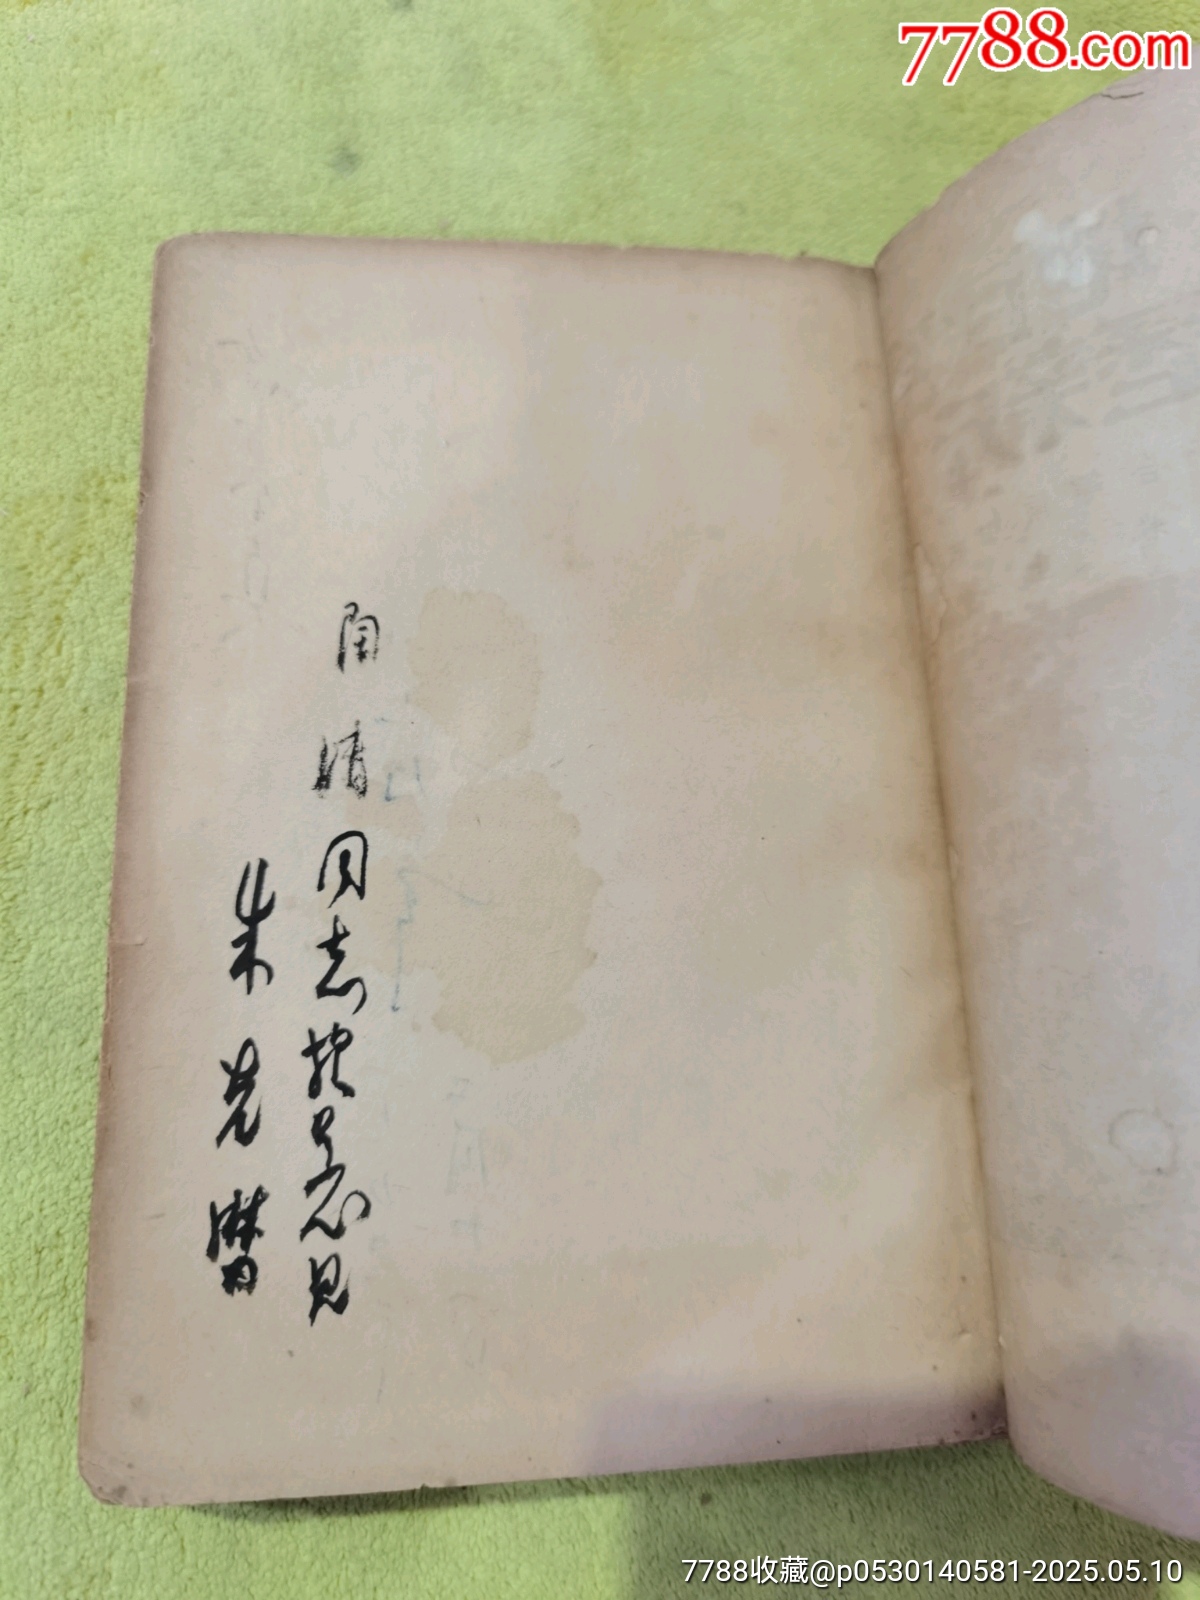 7788.com
陶清同志提意見
朱光潛
7788收藏@p0530140581-2025.05.10